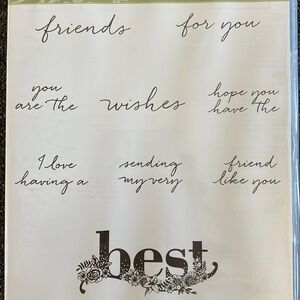 friends
for you
you
are the
wishes
hope you
have the
I love
having a
sending
my very
friend
like you
best